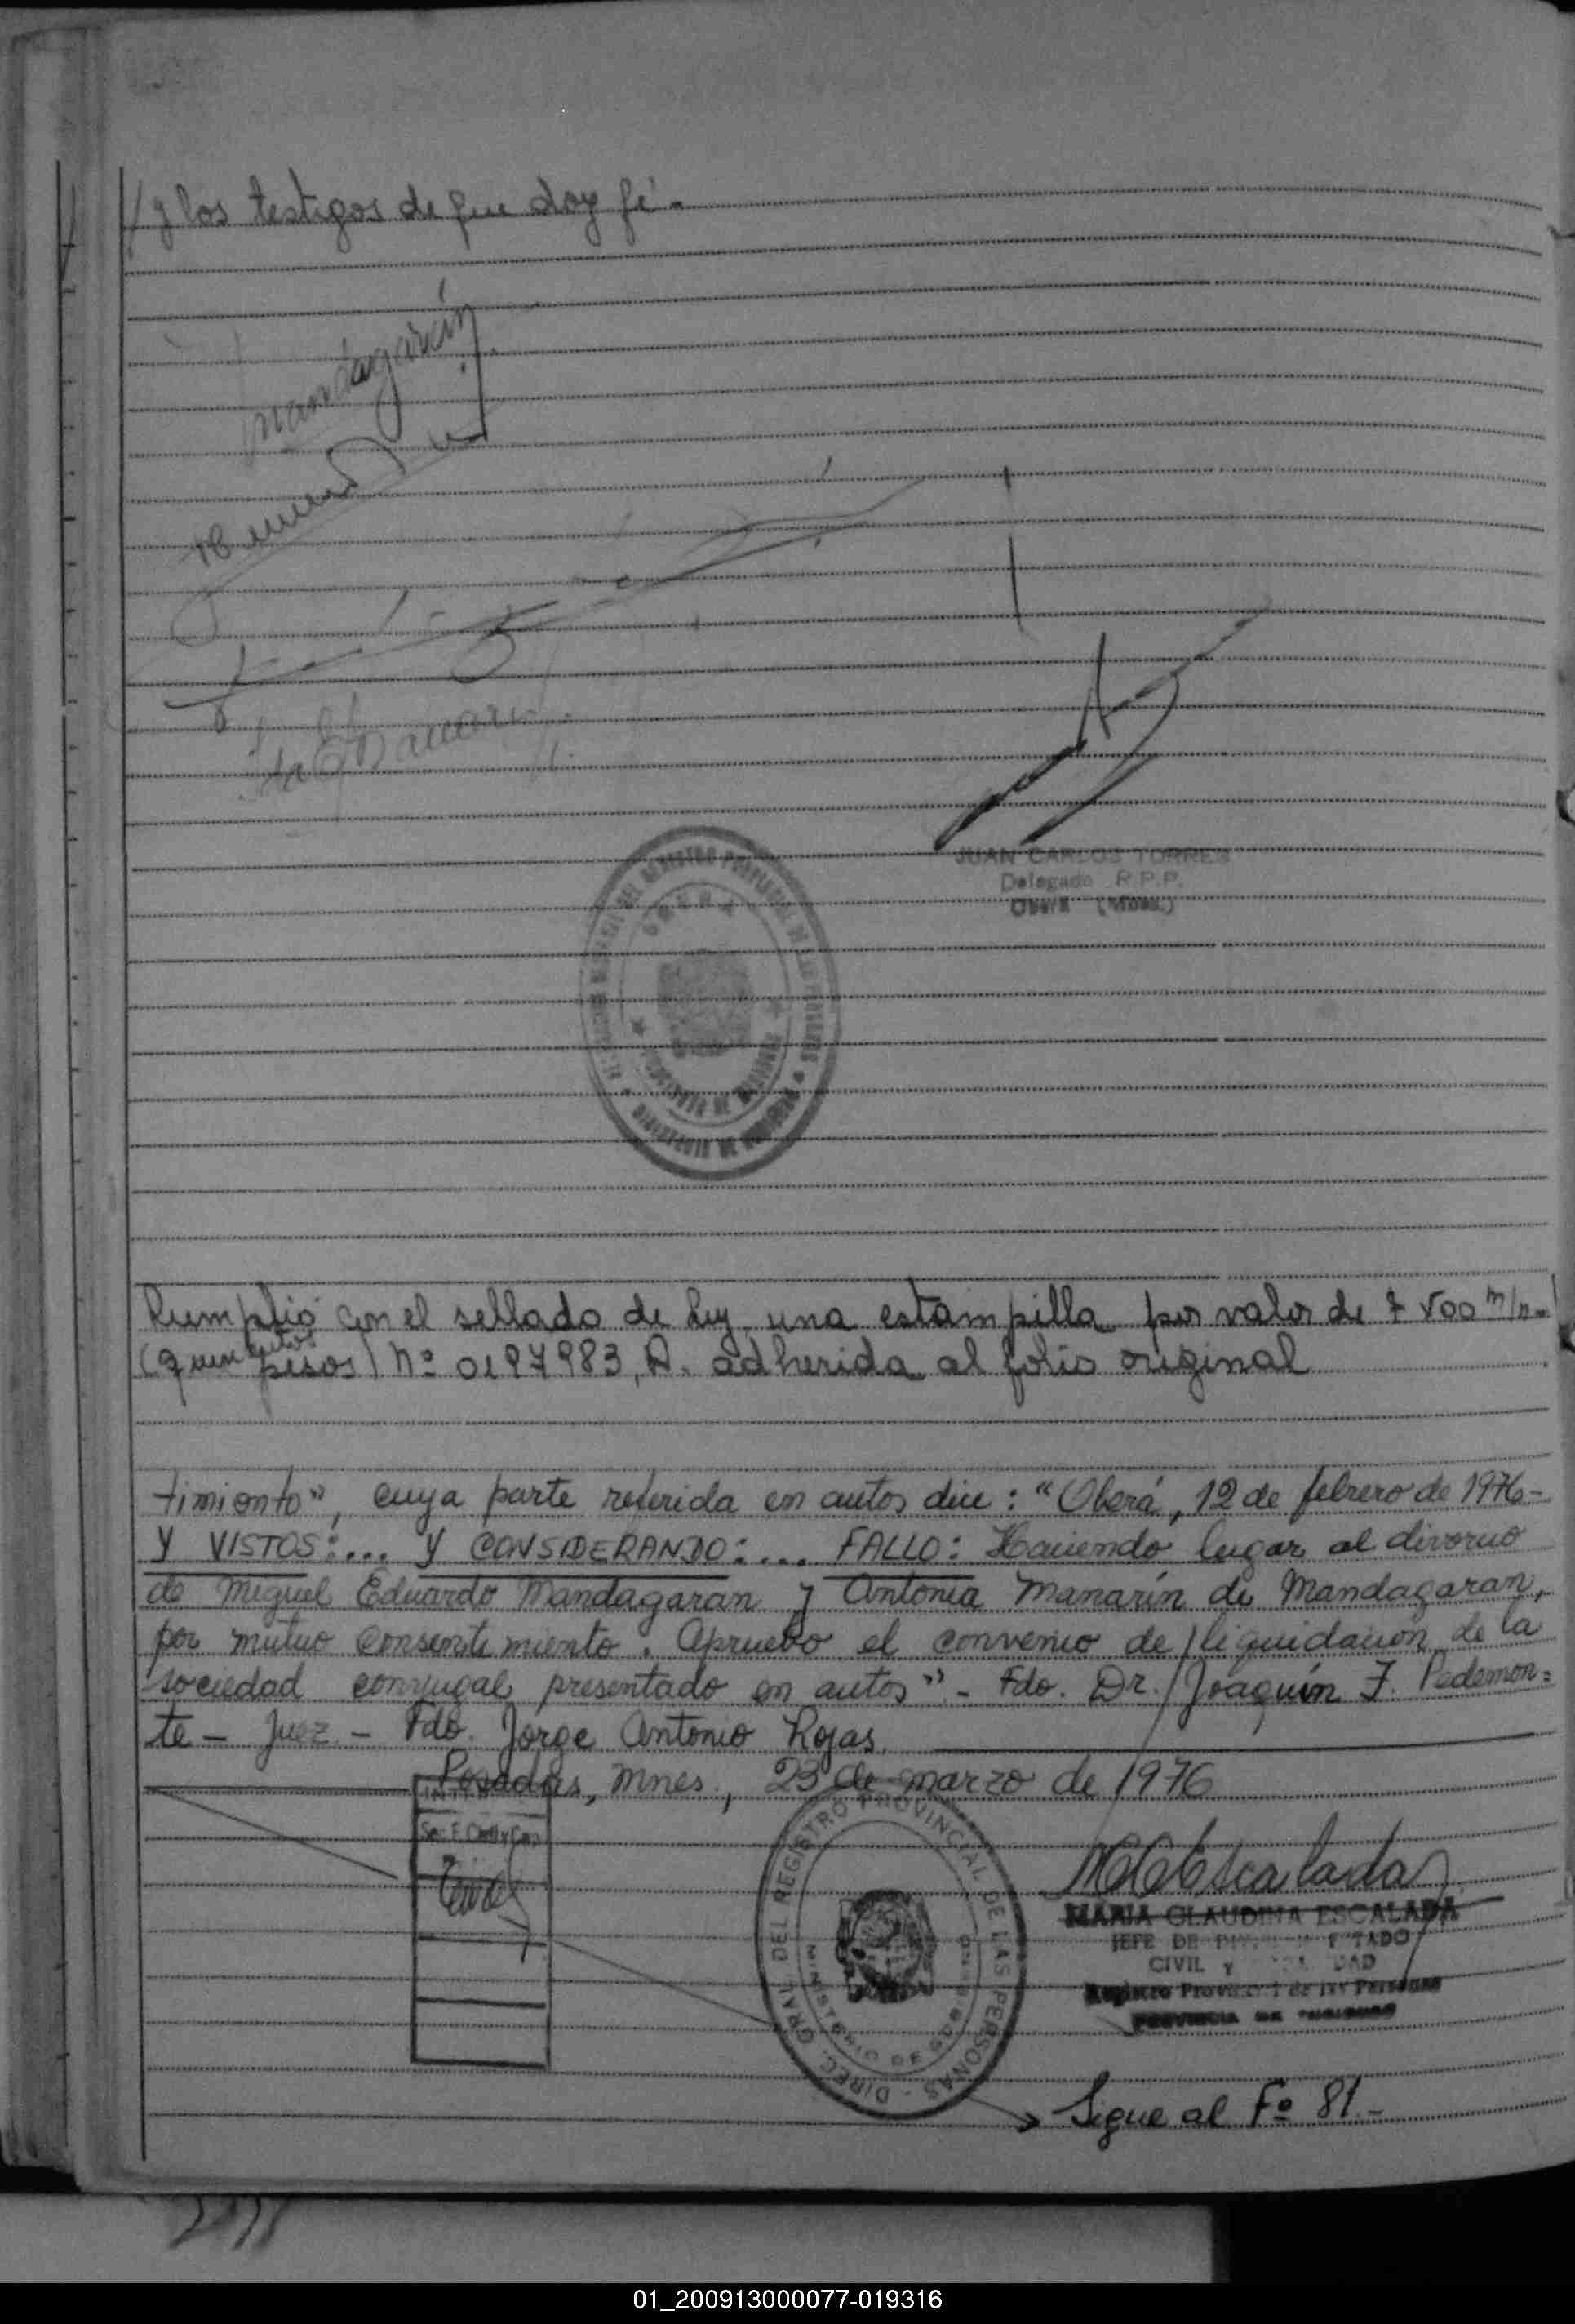 /y los testigos de que doy fé.-
Mandagarán
JUAN CARLOS TORRES
Delegado R.P.P.
Oberá (Mnes.)
Cumplió con el sellado de Ley una estampilla por valor de $ 500 m/n.-
(quinientos pesos) Nº 0197983, A. adherida al folio original
timiento", cuya parte referida en autos dice: "Oberá, 12 de febrero de 1976-
Y VISTOS:... Y CONSIDERANDO:... FALLO: Haciendo lugar al divorcio
de Miguel Eduardo Mandagaran y Antonia Manarín de Mandagaran,
por mutuo consentimiento. Apruebo el convenio de liquidación de la
sociedad conyugal presentado en autos"- Fdo. Dr. Joaquín F. Pedemon=
te - Juez - Fdo. Jorge Antonio Rojas.
Posadas, Mnes., 23 de marzo de 1976
DIREC. GRAL. DEL REGISTRO PROVINCIAL DE LAS PERSONAS
MINISTERIO DE GOB
MCEscalada
MARIA CLAUDINA ESCALADA
JEFE DE
CIVIL y
Registro Provincial de las Personas
PROVINCIA DE MISIONES
Sigue al Fº 81.-
01_200913000077-019316